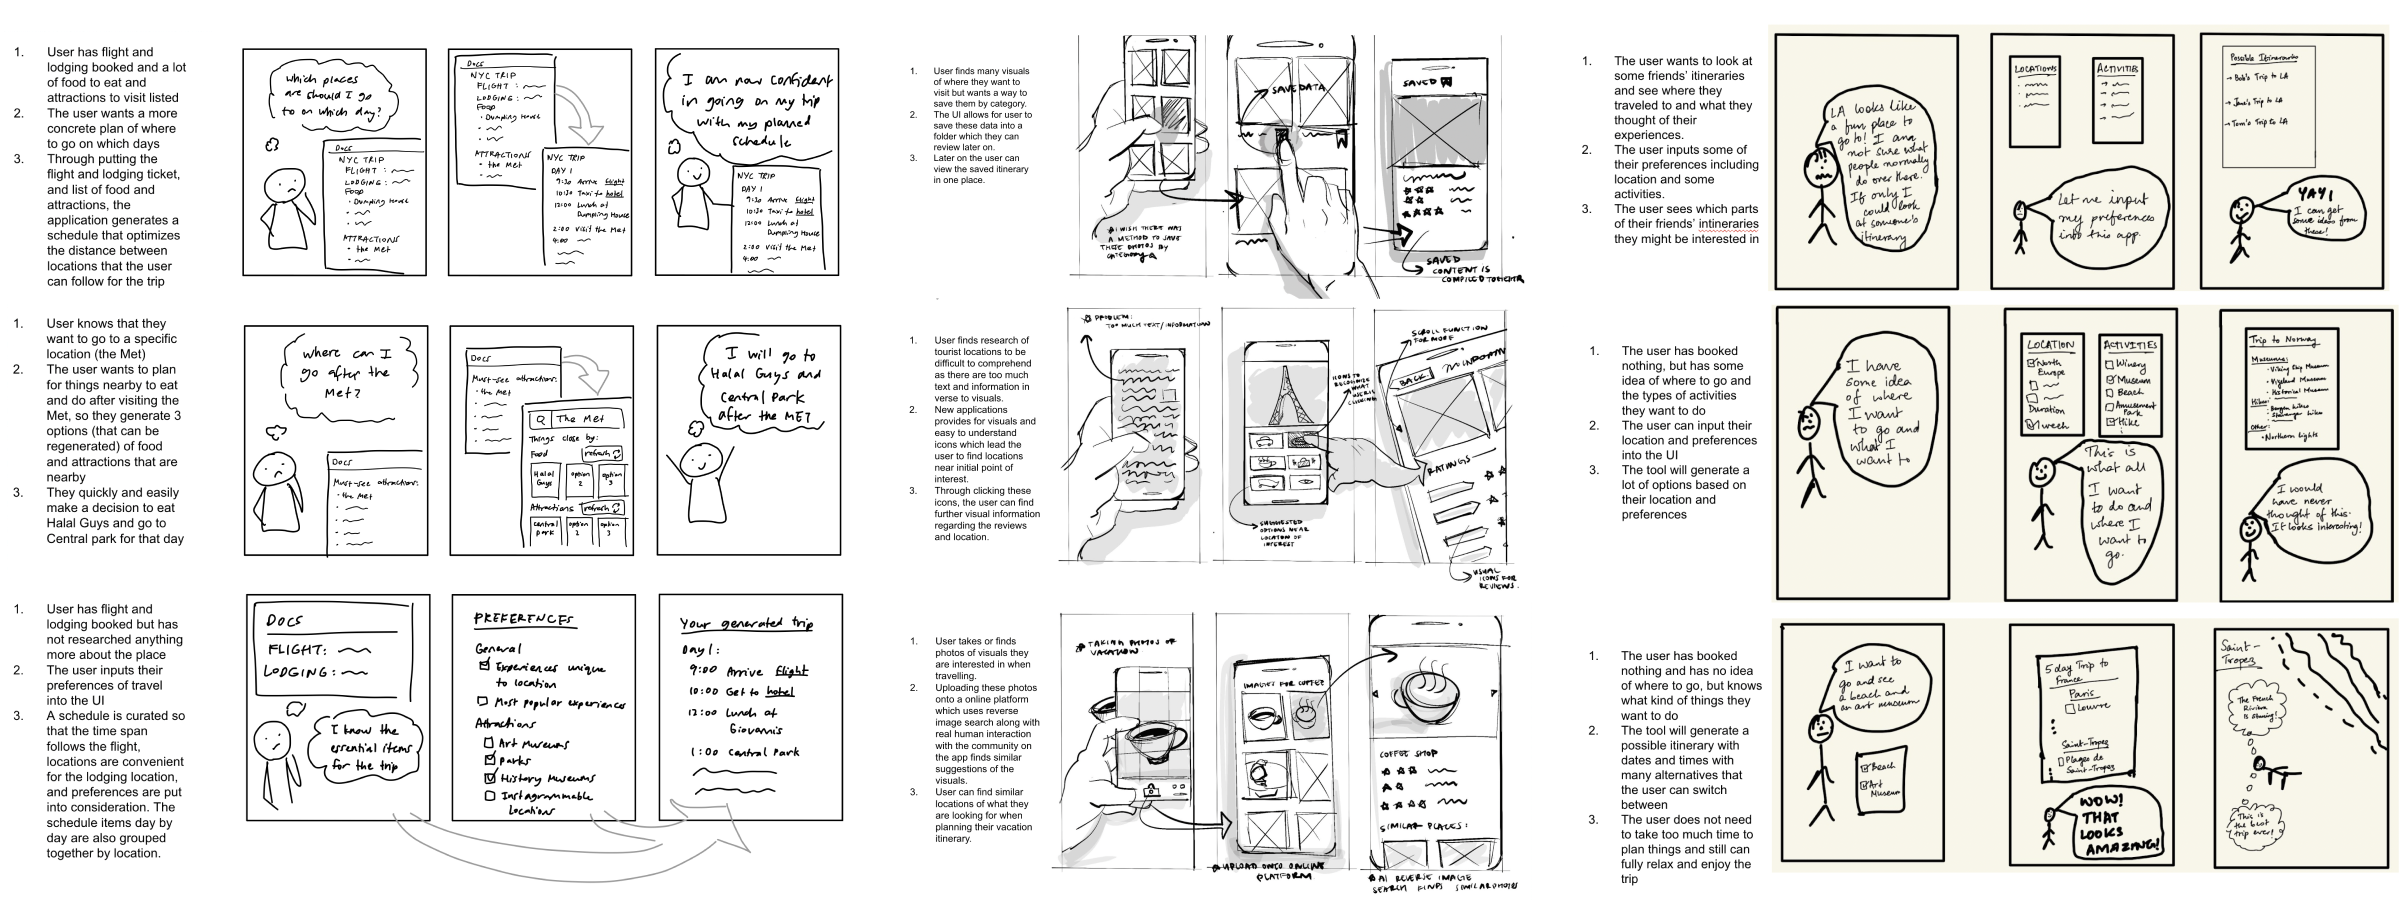 1. User has flight and
lodging booked and a lot
of food to eat and
attractions to visit listed
2. The user wants a more
concrete plan of where
to go on which days
3. Through putting the
flight and lodging ticket,
and list of food and
attractions, the
application generates a
schedule that optimizes
the distance between
locations that the user
can follow for the trip
which places
are should I go
to on which day?
DOCS
NYC TRIP
FLIGHT :
LODGING :
FOOD
• Dumpling House
ATTRACTIONS
• the Met
DOCS
NYC TRIP
FLIGHT :
LODGING :
FOOD
• Dumpling House
ATTRACTIONS
• the Met
NYC TRIP
DAY 1
9:30 Arrive flight
10:30 Taxi to hotel
12:00 Lunch at
Dumpling House
2:00 Visit the Met
4:00
I am now confident
in going on my trip
with my planned
schedule
NYC TRIP
DAY 1
9:30 Arrive flight
10:30 Taxi to hotel
12:00 Lunch at
Dumpling House
2:00 Visit the Met
4:00
1. User knows that they
want to go to a specific
location (the Met)
2. The user wants to plan
for things nearby to eat
and do after visiting the
Met, so they generate 3
options (that can be
regenerated) of food
and attractions that are
nearby
3. They quickly and easily
make a decision to eat
Halal Guys and go to
Central park for that day
where can I
go after the
Met?
Docs
Must-see attractions:
• the Met
Docs
Must-see attractions:
• the Met
Q The Met
Things close by:
Food refresh
Halal Guys
option 2
option 3
Attractions refresh
central park
option 2
option 3
I will go to
Halal Guys and
Central Park
after the MET
1. User has flight and
lodging booked but has
not researched anything
more about the place
2. The user inputs their
preferences of travel
into the UI
3. A schedule is curated so
that the time span
follows the flight,
locations are convenient
for the lodging location,
and preferences are put
into consideration. The
schedule items day by
day are also grouped
together by location.
DOCS
FLIGHT:
LODGING:
I know the
essential items
for the trip
PREFERENCES
General
Experiences unique
to location
Most popular experiences
Attractions
Art Museums
Parks
History Museums
Instagrammable
Locations
Your generated trip
Day 1:
9:00 Arrive flight
10:00 Get to hotel
12:00 Lunch at
Giovannis
1:00 Central Park
1. User finds many visuals
of where they want to
visit but wants a way to
save them by category.
2. The UI allows for user to
save these data into a
folder which they can
review later on.
3. Later on the user can
view the saved itinerary
in one place.
I WISH THERE WAS
A METHOD TO SAVE
THESE PHOTOS BY
CATEGORY
SAVE DATA
SAVED
SAVED
CONTENT IS
COMPILED TOGETHER
1. User finds research of
tourist locations to be
difficult to comprehend
as there are too much
text and information in
verse to visuals.
2. New applications
provides for visuals and
easy to understand
icons which lead the
user to find locations
near initial point of
interest.
3. Through clicking these
icons, the user can find
further visual information
regarding the reviews
and location.
PROBLEM:
TOO MUCH TEXT/INFORMATION
ICONS TO
RECOGNIZE
WHAT
USER IS
CLICKING
SUGGESTED
OPTIONS NEAR
LOCATION OF
INTEREST
SCROLL FUNCTION
FOR MORE
BACK
RATINGS
VISUAL
ICONS FOR
REVIEWS.
1. User takes or finds
photos of visuals they
are interested in when
travelling.
2. Uploading these photos
onto a online platform
which uses reverse
image search along with
real human interaction
with the community on
the app finds similar
suggestions of the
visuals.
3. User can find similar
locations of what they
are looking for when
planning their vacation
itinerary.
TAKING PHOTOS OF
VACATION
IMAGES FOR COFFEE
UPLOAD ONTO ONLINE
PLATFORM
COFFEE SHOP
SIMILAR PLACES:
AI REVERSE IMAGE
SEARCH FINDS SIMILAR PHOTOS
1. The user wants to look at
some friends' itineraries
and see where they
traveled to and what they
thought of their
experiences.
2. The user inputs some of
their preferences including
location and some
activities.
3. The user sees which parts
of their friends' intineraries
they might be interested in
LA looks like
a fun place to
go to! I am
not sure what
people normally
do over there.
If only I
could look
at someone's
itinerary
LOCATIONS
ACTIVITIES
Let me input
my preferences
into this app.
Possible Itineraries
→ Bob's Trip to LA
→ Jane's Trip to LA
→ Tom's Trip to LA
YAY!
I can get
some ideas from
these!
1. The user has booked
nothing, but has some
idea of where to go and
the types of activities
they want to do
2. The user can input their
location and preferences
into the UI
3. The tool will generate a
lot of options based on
their location and
preferences
I have
some idea
of where
I want
to go and
what I
want to
LOCATION
North
Europe
Duration
1 week
ACTIVITIES
Winery
Museum
Beach
Amusement
Park
Hike
This is
what all
I want
to do and
where I
want to
go.
Trip to Norway
Museums:
• Viking Ship Museum
• Vigeland Museum
• Historical Museum
Hikes:
• Bergen hike
• Stavanger hike
Other:
• Northern Lights
I would
have never
thought of this.
It looks interesting!
1. The user has booked
nothing and has no idea
of where to go, but knows
what kind of things they
want to do
2. The tool will generate a
possible itinerary with
dates and times with
many alternatives that
the user can switch
between
3. The user does not need
to take too much time to
plan things and still can
fully relax and enjoy the
trip
I want to
go and see
a beach and
an art museum
Beach
Art
Museum
5 day Trip to
France
Paris
Louvre
Saint-Tropez
Plages de
Saint-Tropez
WOW!
THAT
LOOKS
AMAZING!
Saint-
Tropez
The French
Riviera
is stunning!
This is
the best
trip ever!